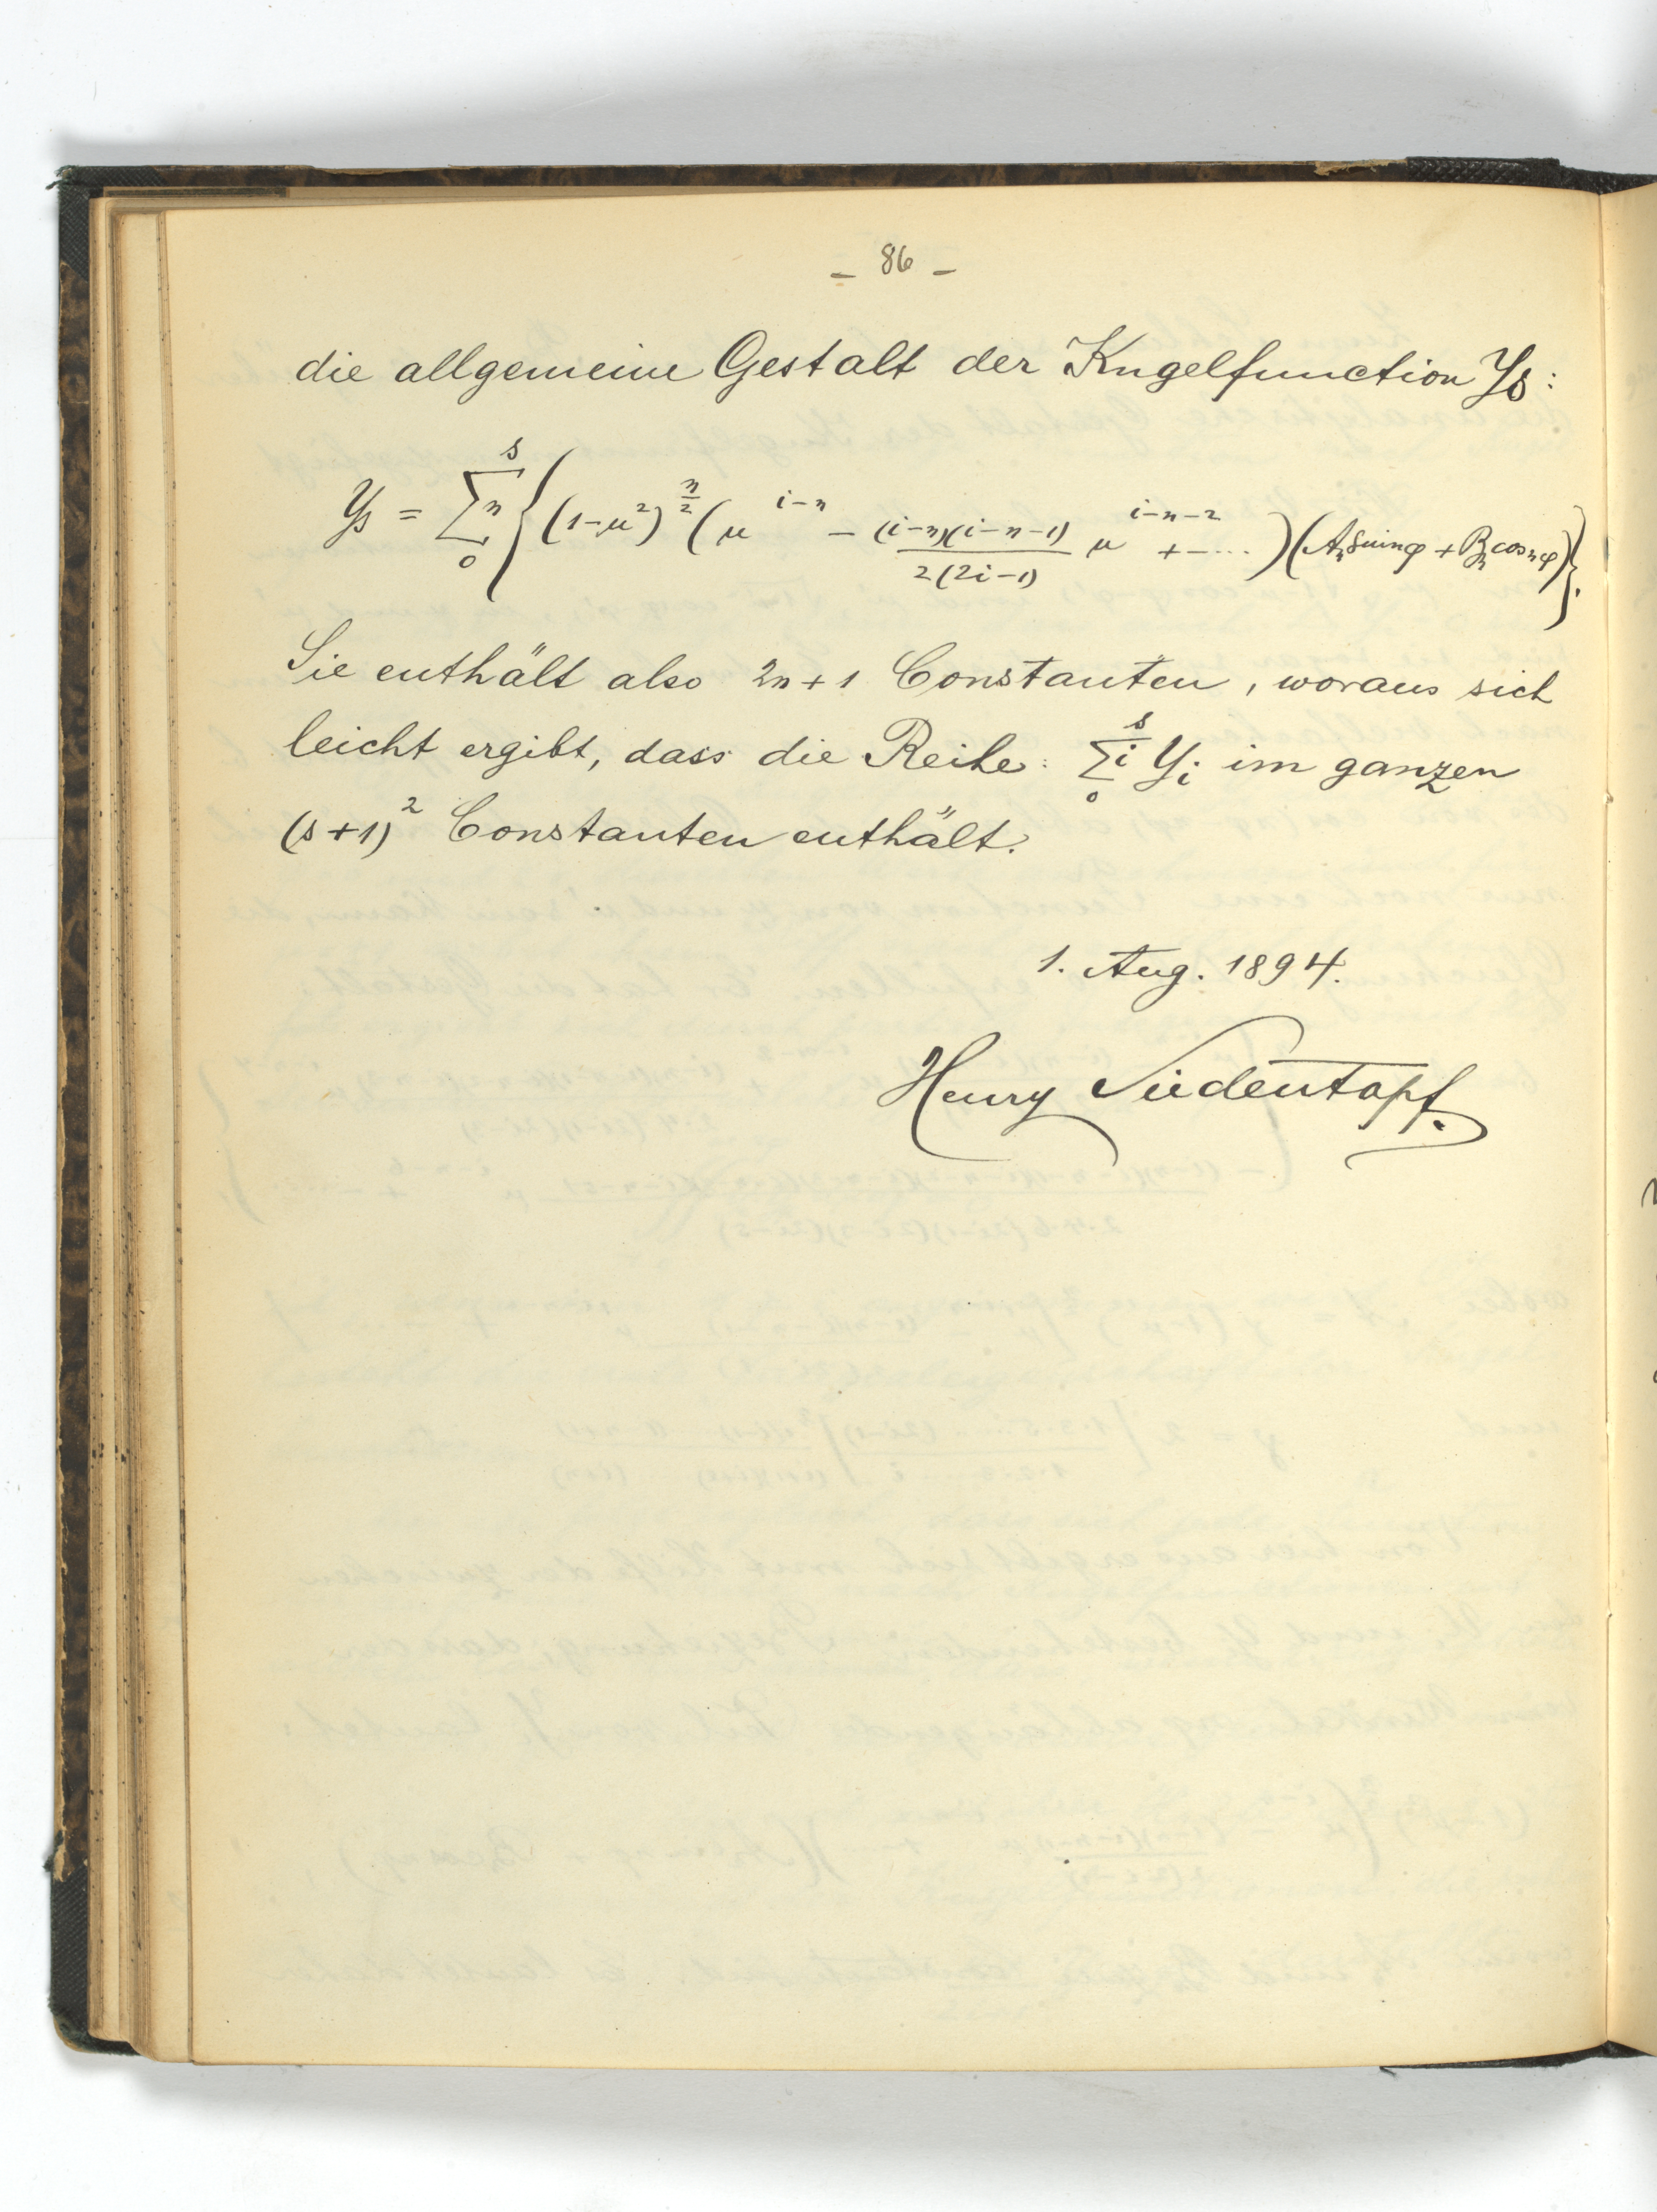 – 86 –
die allgemeine Gestalt der Kugelfunction Y_s:
Y_s = \sum_0^s n {(1-μ²)^{n/2} (μ^{i-n} - \frac{(i-n)(i-n-1)}{2(2i-1)} μ^{i-n-2} + - ....)(A_n sin nφ + B_n cos nφ)}.
Sie enthält also 2n+1 Constanten, woraus sich
leicht ergibt, dass die Reihe: \sum_0^s i Y_i im ganzen
(s+1)² Constanten enthält.
1. Aug. 1894.
Henry Siedentopf.